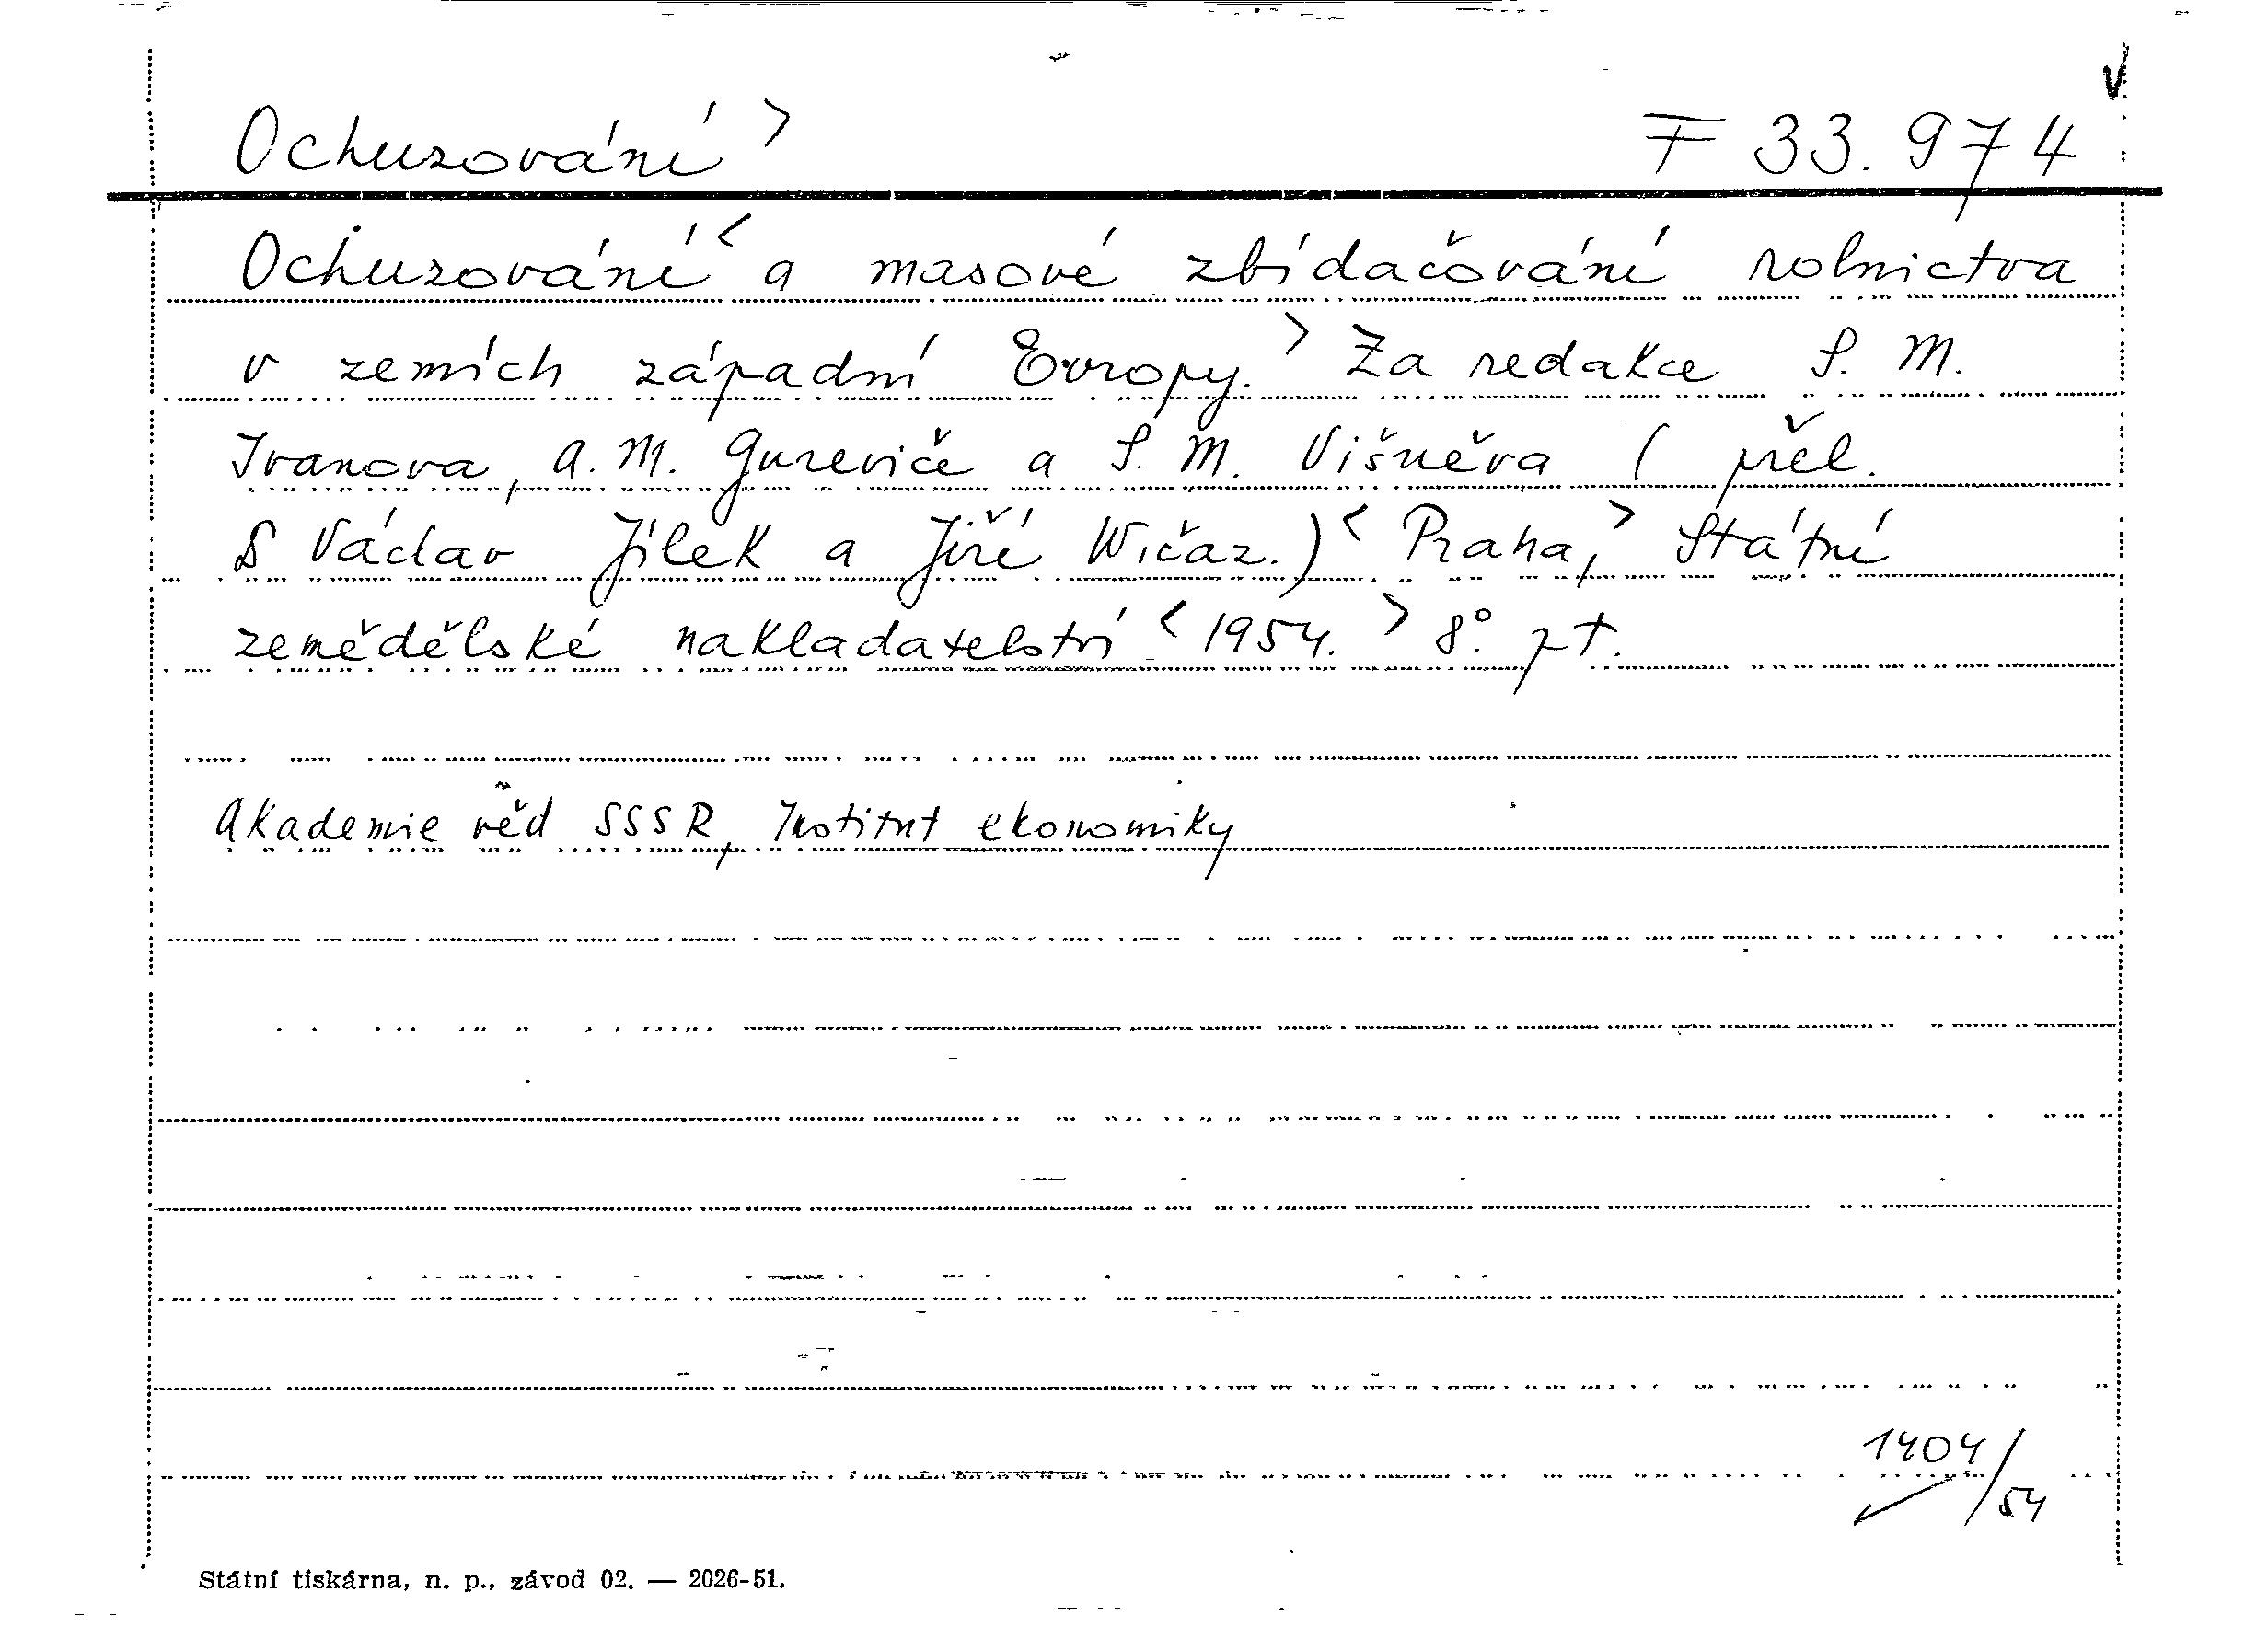 Ochuzování > F 33.974
Ochuzování < a masové zbídačování rolnictva
v zemích západní Evropy. > Za redakce S. M.
Ivanova, A. M. Gureviče a S. M. Višněva ( přel.
S Václav Jílek a Jiří Wičaz.) < Praha, > Státní
zemědělské nakladatelství < 1954. > 8° pt.
Akademie věd SSSR, Institut ekonomiky
1404/54
Státní tiskárna, n. p., závod 02. — 2026-51.